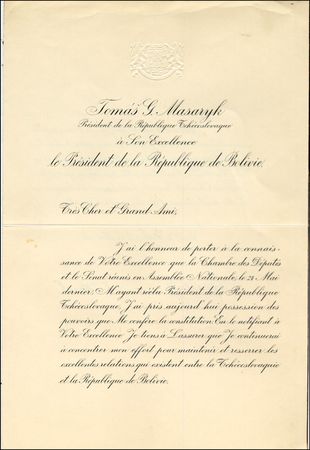 Tomáš G. Masaryk
Président de la République Tchécoslovaque
à Son Excellence
le Président de la République de Bolivie.
Très Cher et Grand Ami,
J'ai l'honneur de porter à la connais-
sance de Votre Excellence que la Chambre des Députés
et le Sénat réunis en Assemblée Nationale, le 24 Mai
dernier, M'ayant réélu Président de la République
Tchécoslovaque, J'ai pris aujourd'hui possession des
pouvoirs que Me confère la constitution. En le notifiant à
Votre Excellence Je tiens à L'assurer que Je continuerai
à concentrer mon effort pour maintenir et resserrer les
excellentes relations qui existent entre la Tchécoslovaquie
et la République de Bolivie.